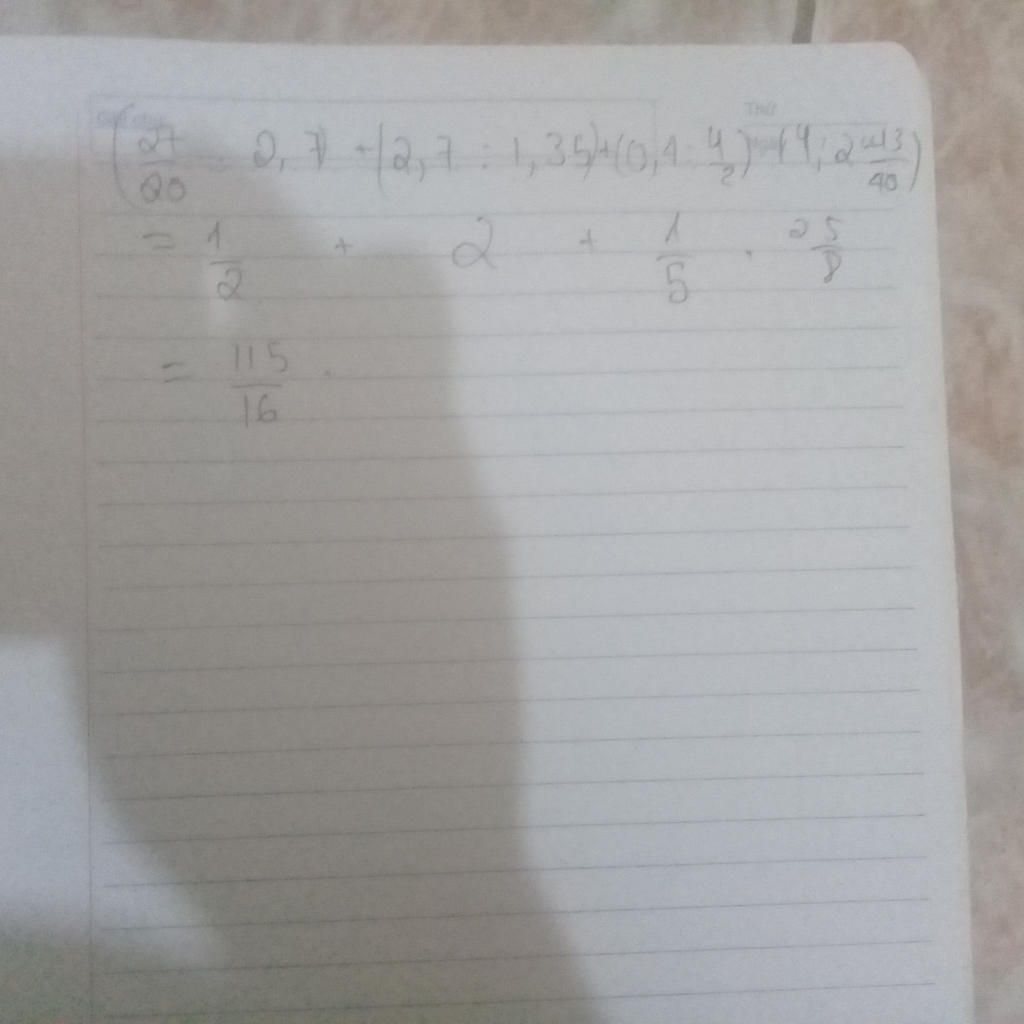 (27/20 : 2,7) + (2,7 : 1,35) + (0,4 : 4/2) · (4,2 - 43/40)
= 1/2 + 2 + 1/5 · 25/8
= 115/16